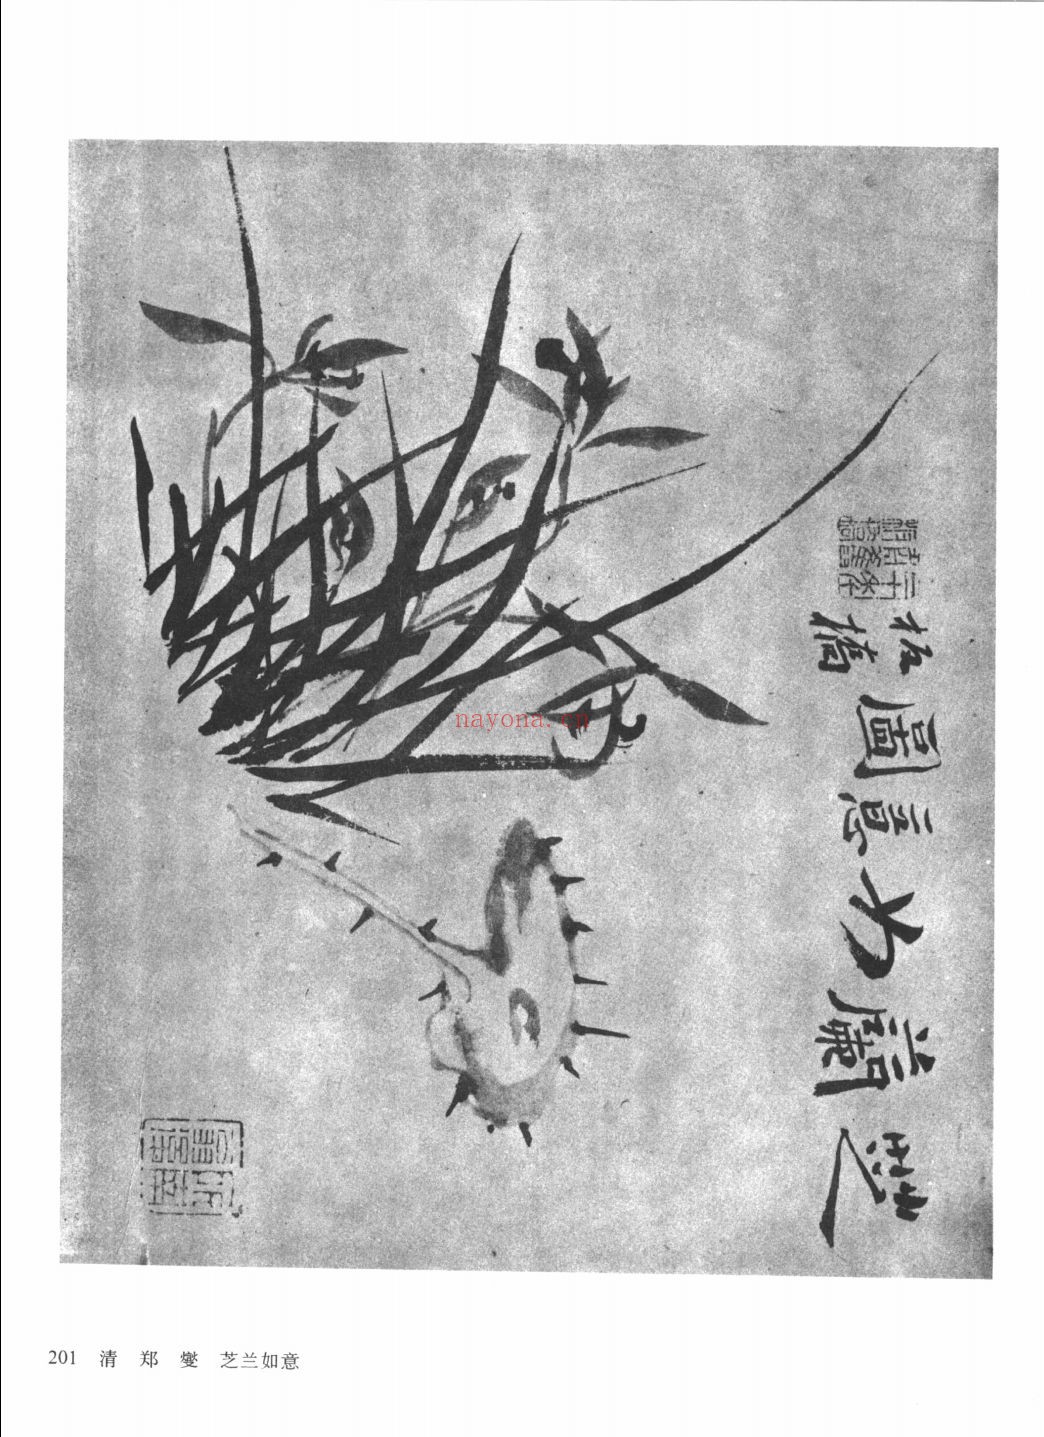 芝蘭如意圖
板橋
nayona.cn
201 清 郑 燮 芝兰如意